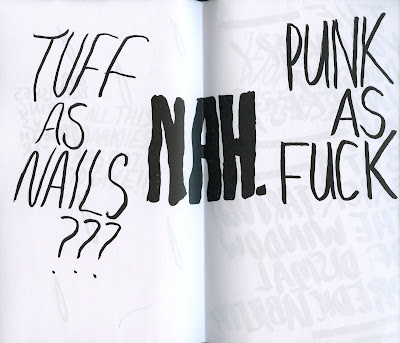 TUFF
AS
NAILS
???
NAH.
PUNK
AS
FUCK